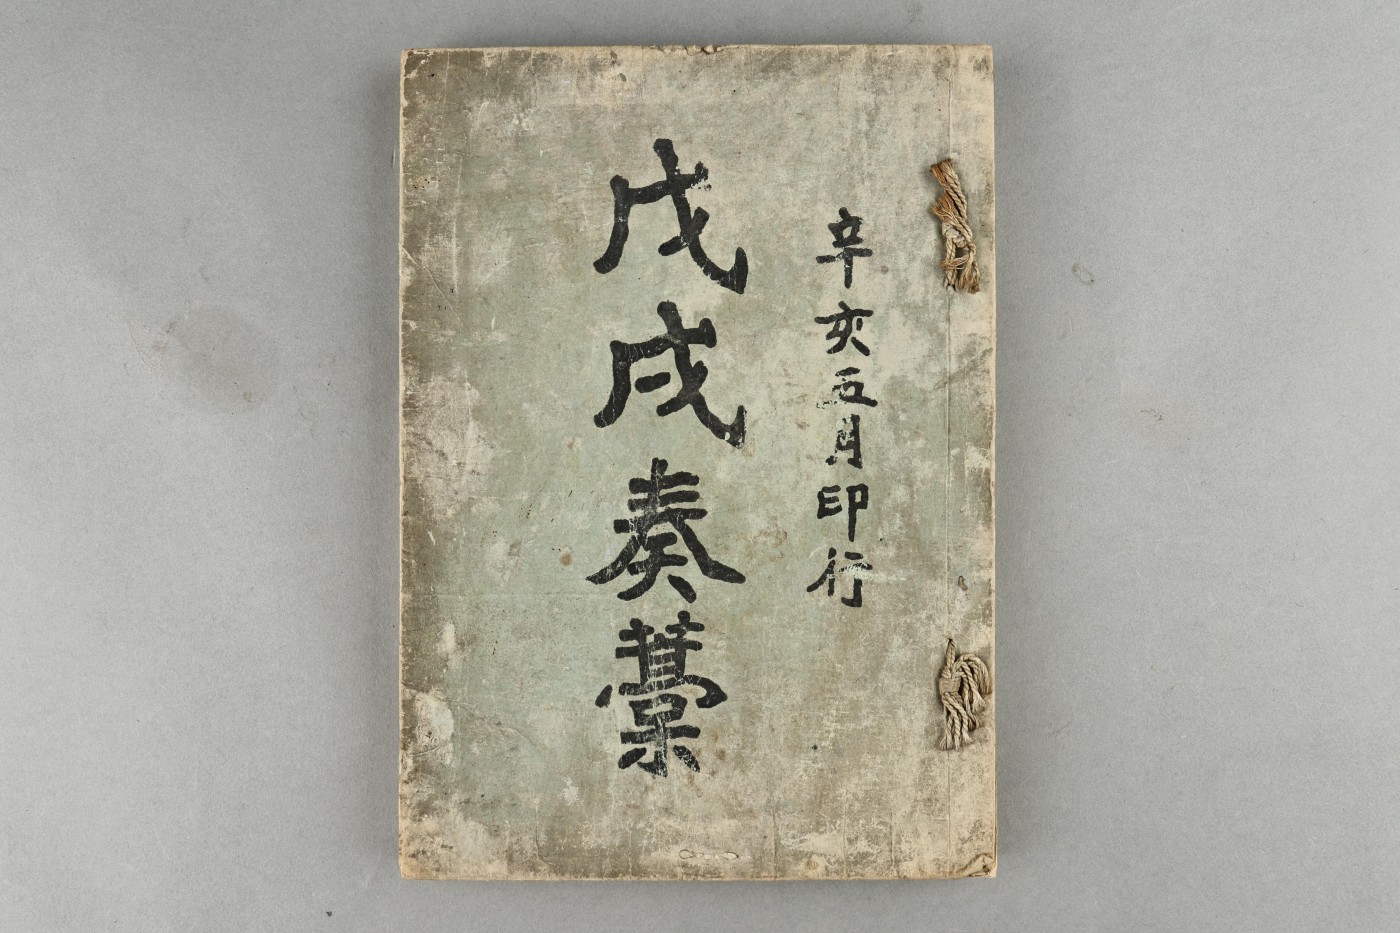 辛亥五月印行
戊戌奏藁